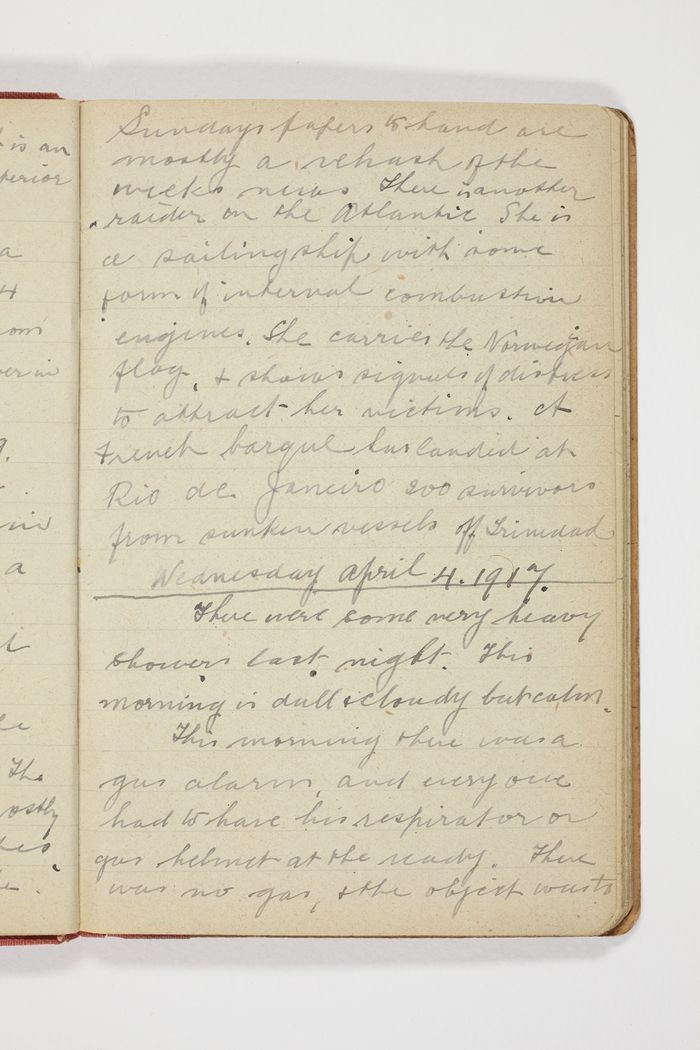 t is an
perior
a
4
om
ver in
9.
a
The
ostly
Sundays papers to hand are
mostly a rehash of the
weeks news There is another
raider on the Atlantic She is
a sailing ship with some
form of internal combustion
engines. She carries the Norwegian
flag, & shows signals of distress
to attract her victims. A
French barque has landed at
Rio de Janeiro 200 survivors
from sunken vessels off Trinidad
Wednesday April 4. 1917.
There were some very heavy
showers last night. This
morning is dull & cloudy but calm.
This morning there was a
gas alarm, and every one
had to have his respirator or
gas helmet at the ready. There
was no gas, & the object was to